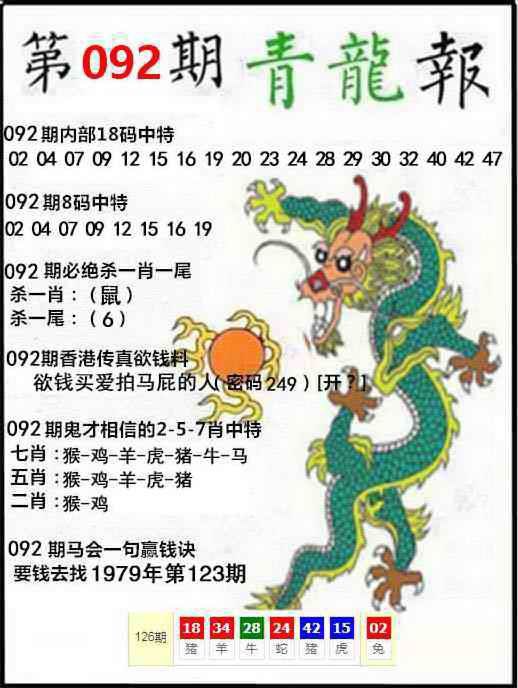 第092期青龍報
092期内部18码中特
02 04 07 09 12 15 16 19 20 23 24 28 29 30 32 40 42 47
092期8码中特
02 04 07 09 12 15 16 19
092 期必绝杀一肖一尾
杀一肖：（鼠）
杀一尾：（6）
092期香港传真欲钱料
欲钱买爱拍马屁的人(密码249）[开？]
092期鬼才相信的2-5-7肖中特
七肖：猴-鸡-羊-虎-猪-牛-马
五肖：猴-鸡-羊-虎-猪
二肖：猴-鸡
092 期马会一句赢钱诀
要钱去找1979年第123期
126期 18 34 28 24 42 15 02
猪 羊 牛 蛇 猪 虎 兔